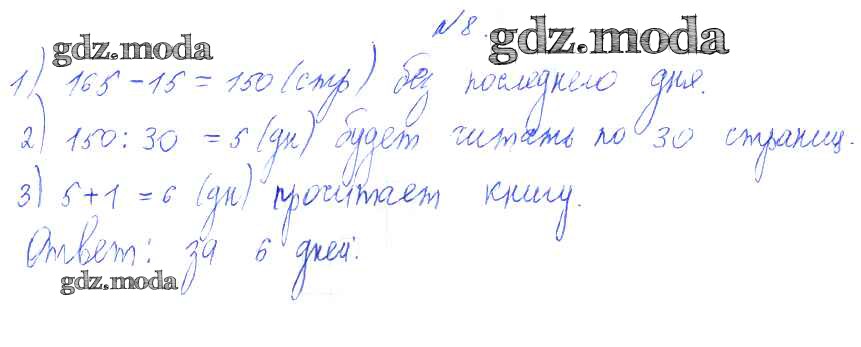 №8.
gdz.moda gdz.moda
1) 165 - 15 = 150 (стр) без последнего дня.
2) 150 : 30 = 5 (дн) будет читать по 30 страниц.
3) 5 + 1 = 6 (дн) прочитает книгу.
Ответ: за 6 дней.
gdz.moda